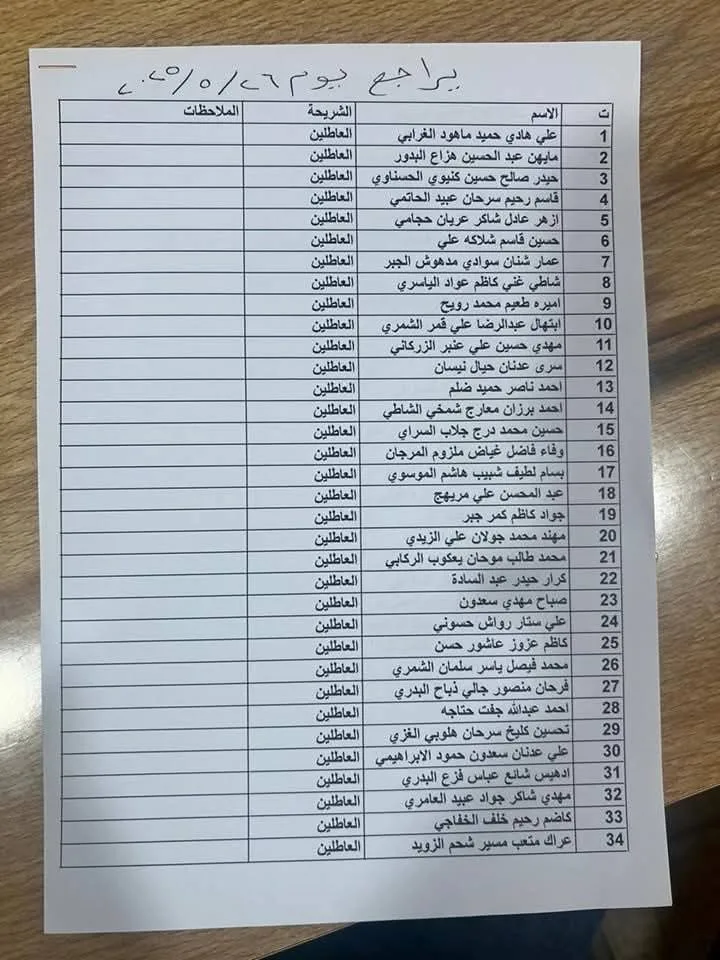 يراجع يوم ٢٠٢٥/٥/٢٦
ت الاسم الشريحة الملاحظات
1 علي هادي حميد ماهود الغرابي العاطلين
2 مايهن عبد الحسين هزاع البدور العاطلين
3 حيدر صالح حسين كنيوي الحسناوي العاطلين
4 قاسم رحيم سرحان عبيد الحاتمي العاطلين
5 ازهر عادل شاكر عريان حجامي العاطلين
6 حسين قاسم شلاكه علي العاطلين
7 عمار شنان سوادي مدهوش الجبر العاطلين
8 شاطي غني كاظم عواد الياسري العاطلين
9 اميره طعيم محمد رويح العاطلين
10 ابتهال عبدالرضا علي قمر الشمري العاطلين
11 مهدي حسين علي عنبر الزركاني العاطلين
12 سرى عدنان حيال نيسان العاطلين
13 احمد ناصر حميد ضلم العاطلين
14 احمد برزان معارج شمخي الشاطي العاطلين
15 حسين محمد درج جلاب السراي العاطلين
16 وفاء فاضل غياض ملزوم المرجان العاطلين
17 بسام لطيف شبيب هاشم الموسوي العاطلين
18 عبد المحسن علي مريهج العاطلين
19 جواد كاظم كمر جبر العاطلين
20 مهند محمد جولان علي الزيدي العاطلين
21 محمد طالب موحان يعكوب الركابي العاطلين
22 كرار حيدر عبد السادة العاطلين
23 صباح مهدي سعدون العاطلين
24 علي ستار رواش حسوني العاطلين
25 كاظم عزوز عاشور حسن العاطلين
26 محمد فيصل ياسر سلمان الشمري العاطلين
27 فرحان منصور جالي ذباح البدري العاطلين
28 احمد عبدالله جفت حتاجه العاطلين
29 تحسين كليخ سرحان هلوبي الغزي العاطلين
30 علي عدنان سعدون حمود الابراهيمي العاطلين
31 ادهيس شائع عباس فزع البدري العاطلين
32 مهدي شاكر جواد عبيد العامري العاطلين
33 كاضم رحيم خلف الخفاجي العاطلين
34 عراك متعب مسير شحم الزويد العاطلين